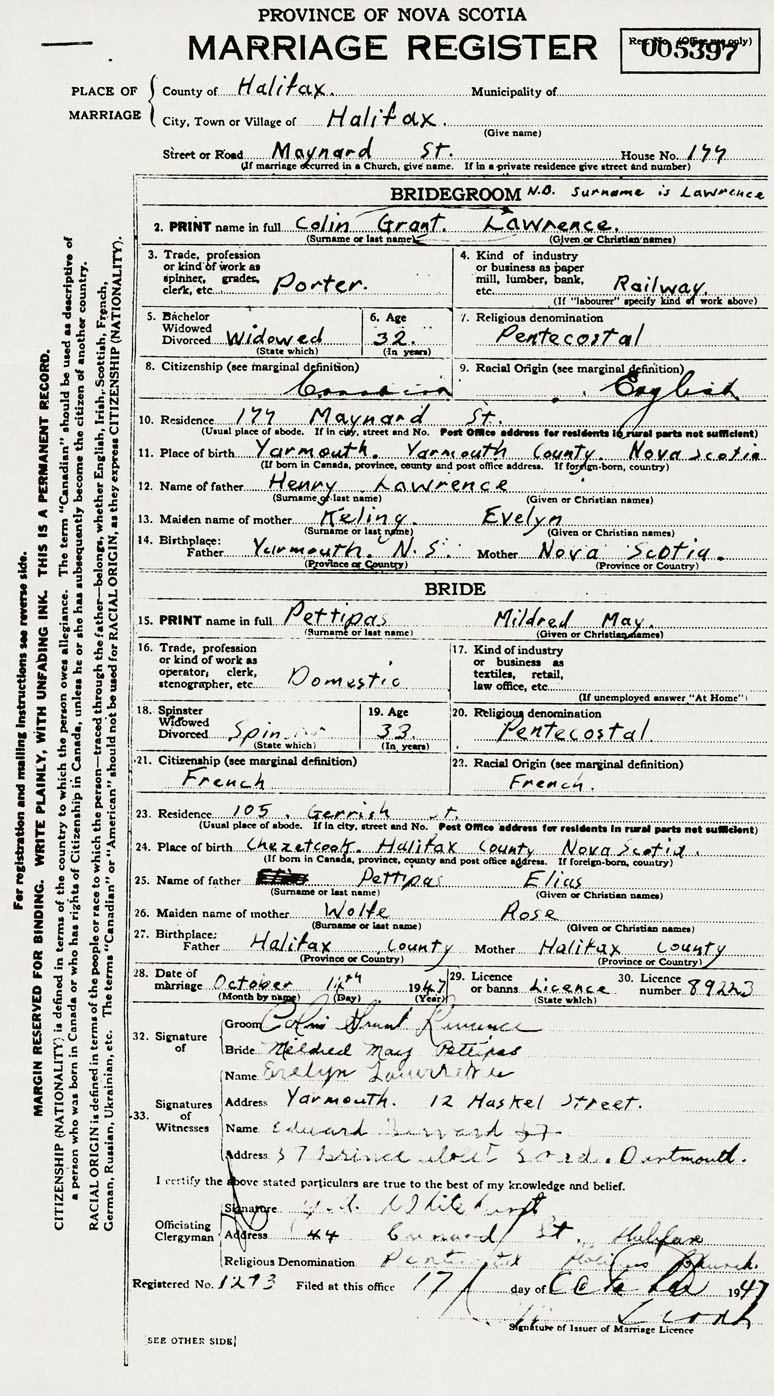 PROVINCE OF NOVA SCOTIA
MARRIAGE REGISTER
Reg. No. (Office use only)
005397
PLACE OF MARRIAGE
County of Halifax. Municipality of
City, Town or Village of Halifax.
(Give name)
Street or Road Maynard St. House No. 177
(If marriage occurred in a Church, give name. If in a private residence give street and number)
BRIDEGROOM N.B. Surname is Lawrence
2. PRINT name in full Colin Grant Lawrence.
(Surname or last name) (Given or Christian names)
3. Trade, profession or kind of work as spinner, grader, clerk, etc. Porter.
4. Kind of industry or business as paper mill, lumber, bank, etc. Railway.
(If "labourer" specify kind of work above)
5. Bachelor Widowed Divorced Widowed
(State which)
6. Age 32.
(In years)
7. Religious denomination
Pentecostal
8. Citizenship (see marginal definition)
Canadian
9. Racial Origin (see marginal definition)
English
10. Residence 177 Maynard St.
(Usual place of abode. If in city, street and No. Post Office address for residents in rural parts not sufficient)
11. Place of birth Yarmouth. Yarmouth County. Nova Scotia
(If born in Canada, province, county and post office address. If foreign-born, country)
12. Name of father Henry Lawrence
(Surname or last name) (Given or Christian names)
13. Maiden name of mother Keling. Evelyn
(Surname or last name) (Given or Christian names)
14. Birthplace: Father Yarmouth. N.S. Mother Nova Scotia.
(Province or Country) (Province or Country)
BRIDE
15. PRINT name in full Pettipas Mildred May.
(Surname or last name) (Given or Christian names)
16. Trade, profession or kind of work as operator, clerk, stenographer, etc. Domestic
17. Kind of industry or business as textiles, retail, law office, etc.
(If unemployed answer "At Home")
18. Spinster Widowed Divorced
(State which)
19. Age 33.
(In years)
20. Religious denomination
Pentecostal
21. Citizenship (see marginal definition)
French
22. Racial Origin (see marginal definition)
French.
23. Residence 105. Gerrish St.
(Usual place of abode. If in city, street and No. Post Office address for residents in rural parts not sufficient)
24. Place of birth Chezetcook. Halifax County Nova Scotia.
(If born in Canada, province, county and post office address. If foreign-born, country)
25. Name of father Pettipas Elias
(Surname or last name) (Given or Christian names)
26. Maiden name of mother Wolfe Rose
(Surname or last name) (Given or Christian names)
27. Birthplace: Father Halifax County Mother Halifax County
(Province or Country) (Province or Country)
28. Date of marriage October 14th 1947
(Month by name) (Day) (Year)
29. Licence or banns Licence
(State which)
30. Licence number 89223
32. Signature of
Groom Colin Grant Lawrence
Bride Mildred May Pettipas
33. Signatures of Witnesses
Name Evelyn Lawrence
Address Yarmouth. 12 Haskel Street.
Name Edward
Address 57 Dartmouth.
I certify the above stated particulars are true to the best of my knowledge and belief.
Officiating Clergyman
Signature Whitehurst
Address 44 Cunard St. Halifax
Religious Denomination Church.
Registered No. 1273 Filed at this office 17 day of October 1947
Signature of Issuer of Marriage Licence
(SEE OTHER SIDE)
For registration and mailing instructions see reverse side.
MARGIN RESERVED FOR BINDING. WRITE PLAINLY, WITH UNFADING INK. THIS IS A PERMANENT RECORD.
CITIZENSHIP (NATIONALITY) is defined in terms of the country to which the person owes allegiance. The term "Canadian" should be used as descriptive of
a person who was born in Canada or who has rights of Citizenship in Canada, unless he or she has subsequently become the citizen of another country.
RACIAL ORIGIN is defined in terms of the people or race to which the person—traced through the father—belongs, whether English, Irish, Scottish, French,
German, Russian, Ukrainian, etc. The terms "Canadian" or "American" should not be used for RACIAL ORIGIN, as they express CITIZENSHIP (NATIONALITY).